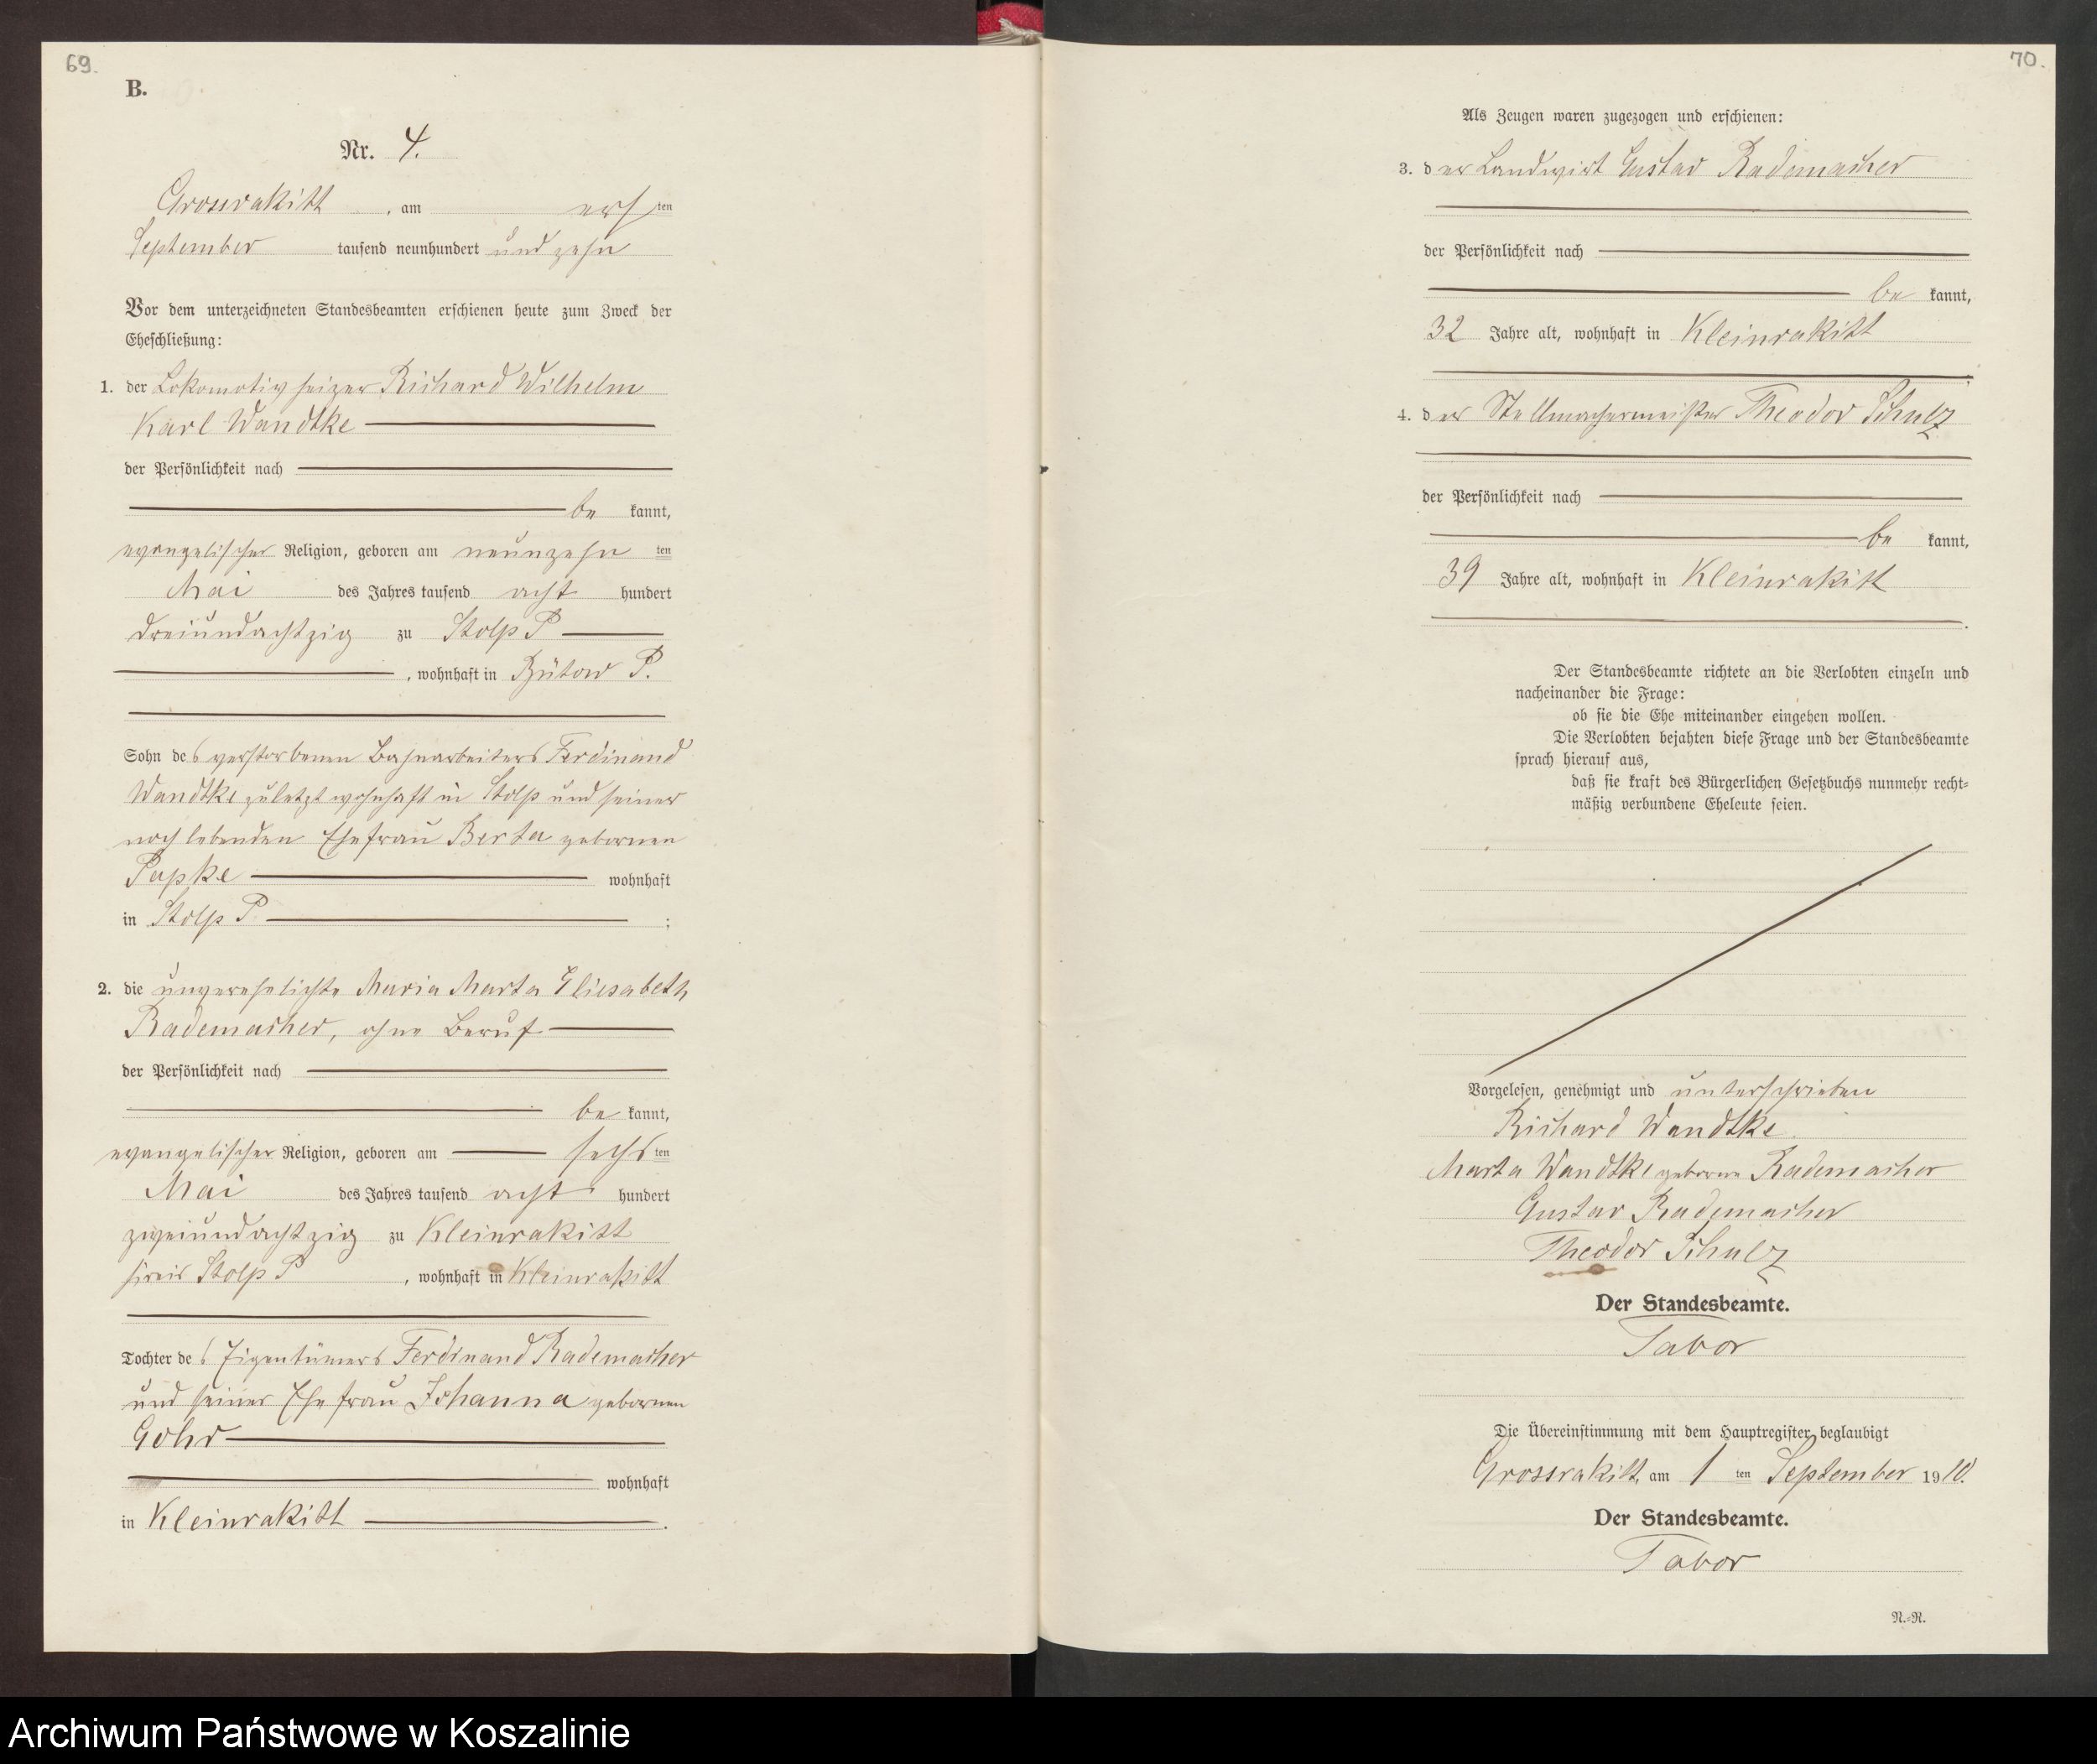 69.
B.
Nr. 4.
Grossrakitt, am ersten
September tausend neunhundert und zehn
Vor dem unterzeichneten Standesbeamten erschienen heute zum Zweck der
Eheschließung:
1. der Lokomotivheizer Richard Wilhelm
Karl Wandtke
der Persönlichkeit nach
be kannt,
evangelischer Religion, geboren am neunzehn ten
Mai des Jahres tausend acht hundert
dreiundachtzig zu Stolp P
, wohnhaft in Bütow P.
Sohn des verstorbenen Bahnarbeiters Ferdinand
Wandtke zuletzt wohnhaft in Stolp und seiner
noch lebenden Ehefrau Berta gebornen
Papke wohnhaft
in Stolp P ;
2. die unverehelichte Maria Marta Eliesabeth
Rademacher, ohne Beruf
der Persönlichkeit nach
be kannt,
evangelischer Religion, geboren am sechsten
Mai des Jahres tausend acht hundert
zweiundachtzig zu Kleinrakitt
Kreis Stolp P , wohnhaft in Kleinrakitt
Tochter des Eigentümers Ferdinand Rademacher
und seiner Ehefrau Johanna gebornen
Gohr
wohnhaft
in Kleinrakitt .
70.
Als Zeugen waren zugezogen und erschienen:
3. der Landwirt Gustav Rademacher
der Persönlichkeit nach
be kannt,
32 Jahre alt, wohnhaft in Kleinrakitt
4. der Stellmachermeister Theodor Schulz
der Persönlichkeit nach
be kannt,
39 Jahre alt, wohnhaft in Kleinrakitt
.
Der Standesbeamte richtete an die Verlobten einzeln und
nacheinander die Frage:
ob sie die Ehe miteinander eingehen wollen.
Die Verlobten bejahten diese Frage und der Standesbeamte
sprach hierauf aus,
daß sie kraft des Bürgerlichen Gesetzbuchs nunmehr recht-
mäßig verbundene Eheleute seien.
Vorgelesen, genehmigt und unterschrieben
Richard Wandtke.
Marta Wandtke geborne Rademacher
Gustav Rademacher
Theodor Schulz
Der Standesbeamte.
Tabor
Die Übereinstimmung mit dem Hauptregister beglaubigt
Grossrakitt, am 1 ten September 1910.
Der Standesbeamte.
Tabor
N.-N.
Archiwum Państwowe w Koszalinie